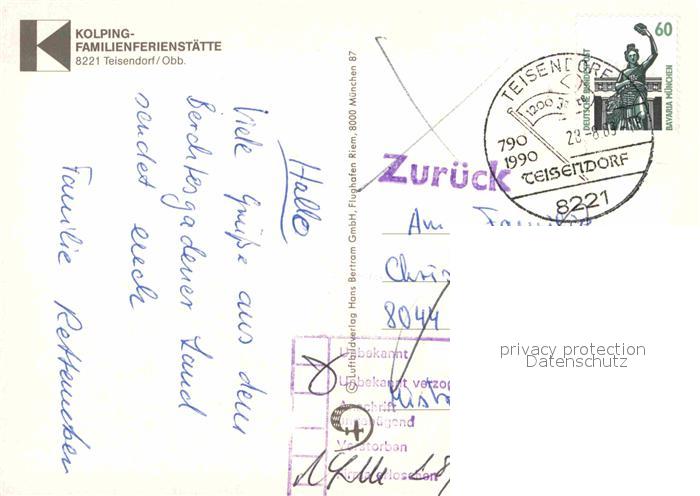 KOLPING-
FAMILIENFERIENSTÄTTE
8221 Teisendorf/Obb.
Hallo
Viele Grüße aus dem
Berchtesgadener Land
sendet euch
Familie
© Luftbildverlag Hans Bertram GmbH, Flughafen Riem, 8000 München 87
60
DEUTSCHE BUNDESPOST
BAVARIA MÜNCHEN
TEISENDORF
1200
790
1990
TEISENDORF
8221
Zurück
An Familie
Chris
8044
Unbekannt
Unbekannt verzog
Anschrift
ungenügend
Verstorben
Firma erloschen
privacy protection
Datenschutz